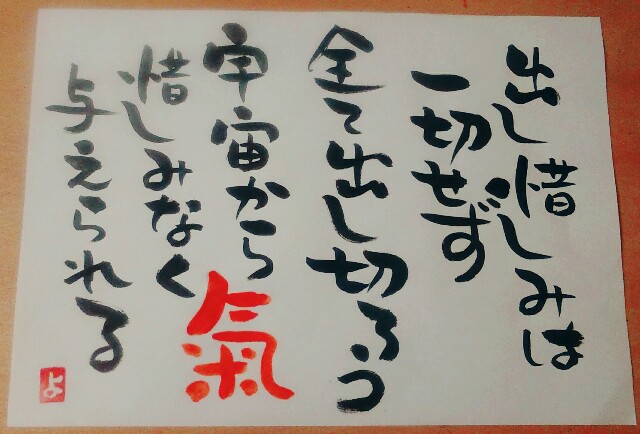 出し惜しみは
一切せず
全て出し切ろう
宇宙から氣
惜しみなく
与えられる
よ